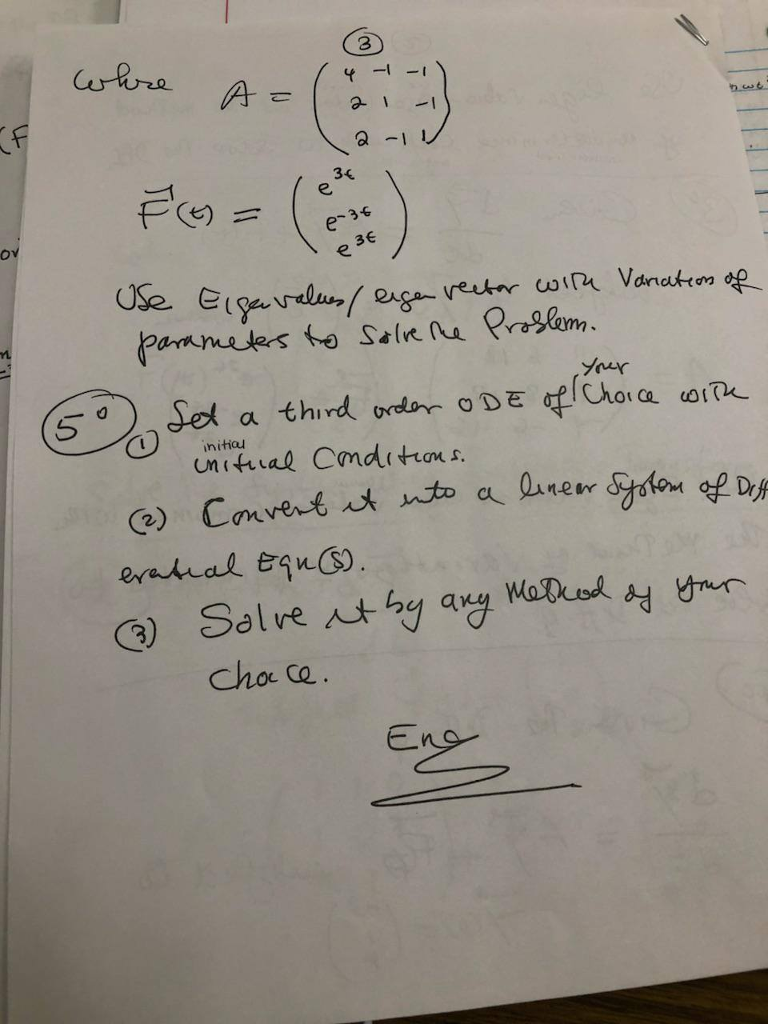 ③
where A = ( 4 -1 -1
2 1 -1
2 -1 1 )
F(t) = ( e^3t
e^-3t
e^3t )
Use Eigenvalues/eigenvector with Variation of
parameters to Solve the Problem.
5° (1) Set a third order ODE of your Choice with
initial
unitual Conditions.
(2) Convert it into a linear System of Diff
erential Equ(s).
(3) Solve it by any Method of your
choice.
End